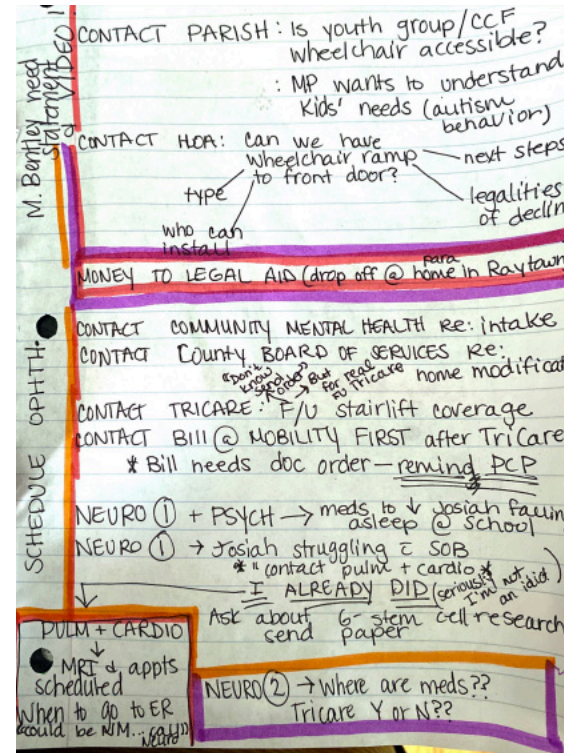 M. Bentley need
Statement
VIDEO!
CONTACT PARISH: Is youth group/CCF
wheelchair accessible?
: MP wants to understand
Kids' needs (autism
behavior)
CONTACT HOA: Can we have
wheelchair ramp
next steps
type
to front door?
legalities
of declin
who can
install
para
MONEY TO LEGAL AID (drop off @ home in Raytown
SCHEDULE OPHTH.
CONTACT COMMUNITY MENTAL HEALTH Re: intake
CONTACT County BOARD OF SERVICES Re:
home modificat
"Don't
know
send
order" → But
for real
FU Tricare
CONTACT TRICARE: F/U stairlift coverage
CONTACT Bill @ MOBILITY FIRST after TriCare
* Bill needs doc order — remind PCP
NEURO ① + PSYCH → meds to ↓ Josiah fallin
asleep @ school
NEURO ① → Josiah struggling c̄ SOB
* "contact pulm + cardio *
I ALREADY DID (seriously I'm not
an idiot)
Ask about G-stem cell research
send paper
PULM + CARDIO
↓
MRI & appts
scheduled
When to go to ER
"could be N/M... call"
Neuro
NEURO ② → Where are meds??
Tricare Y or N??